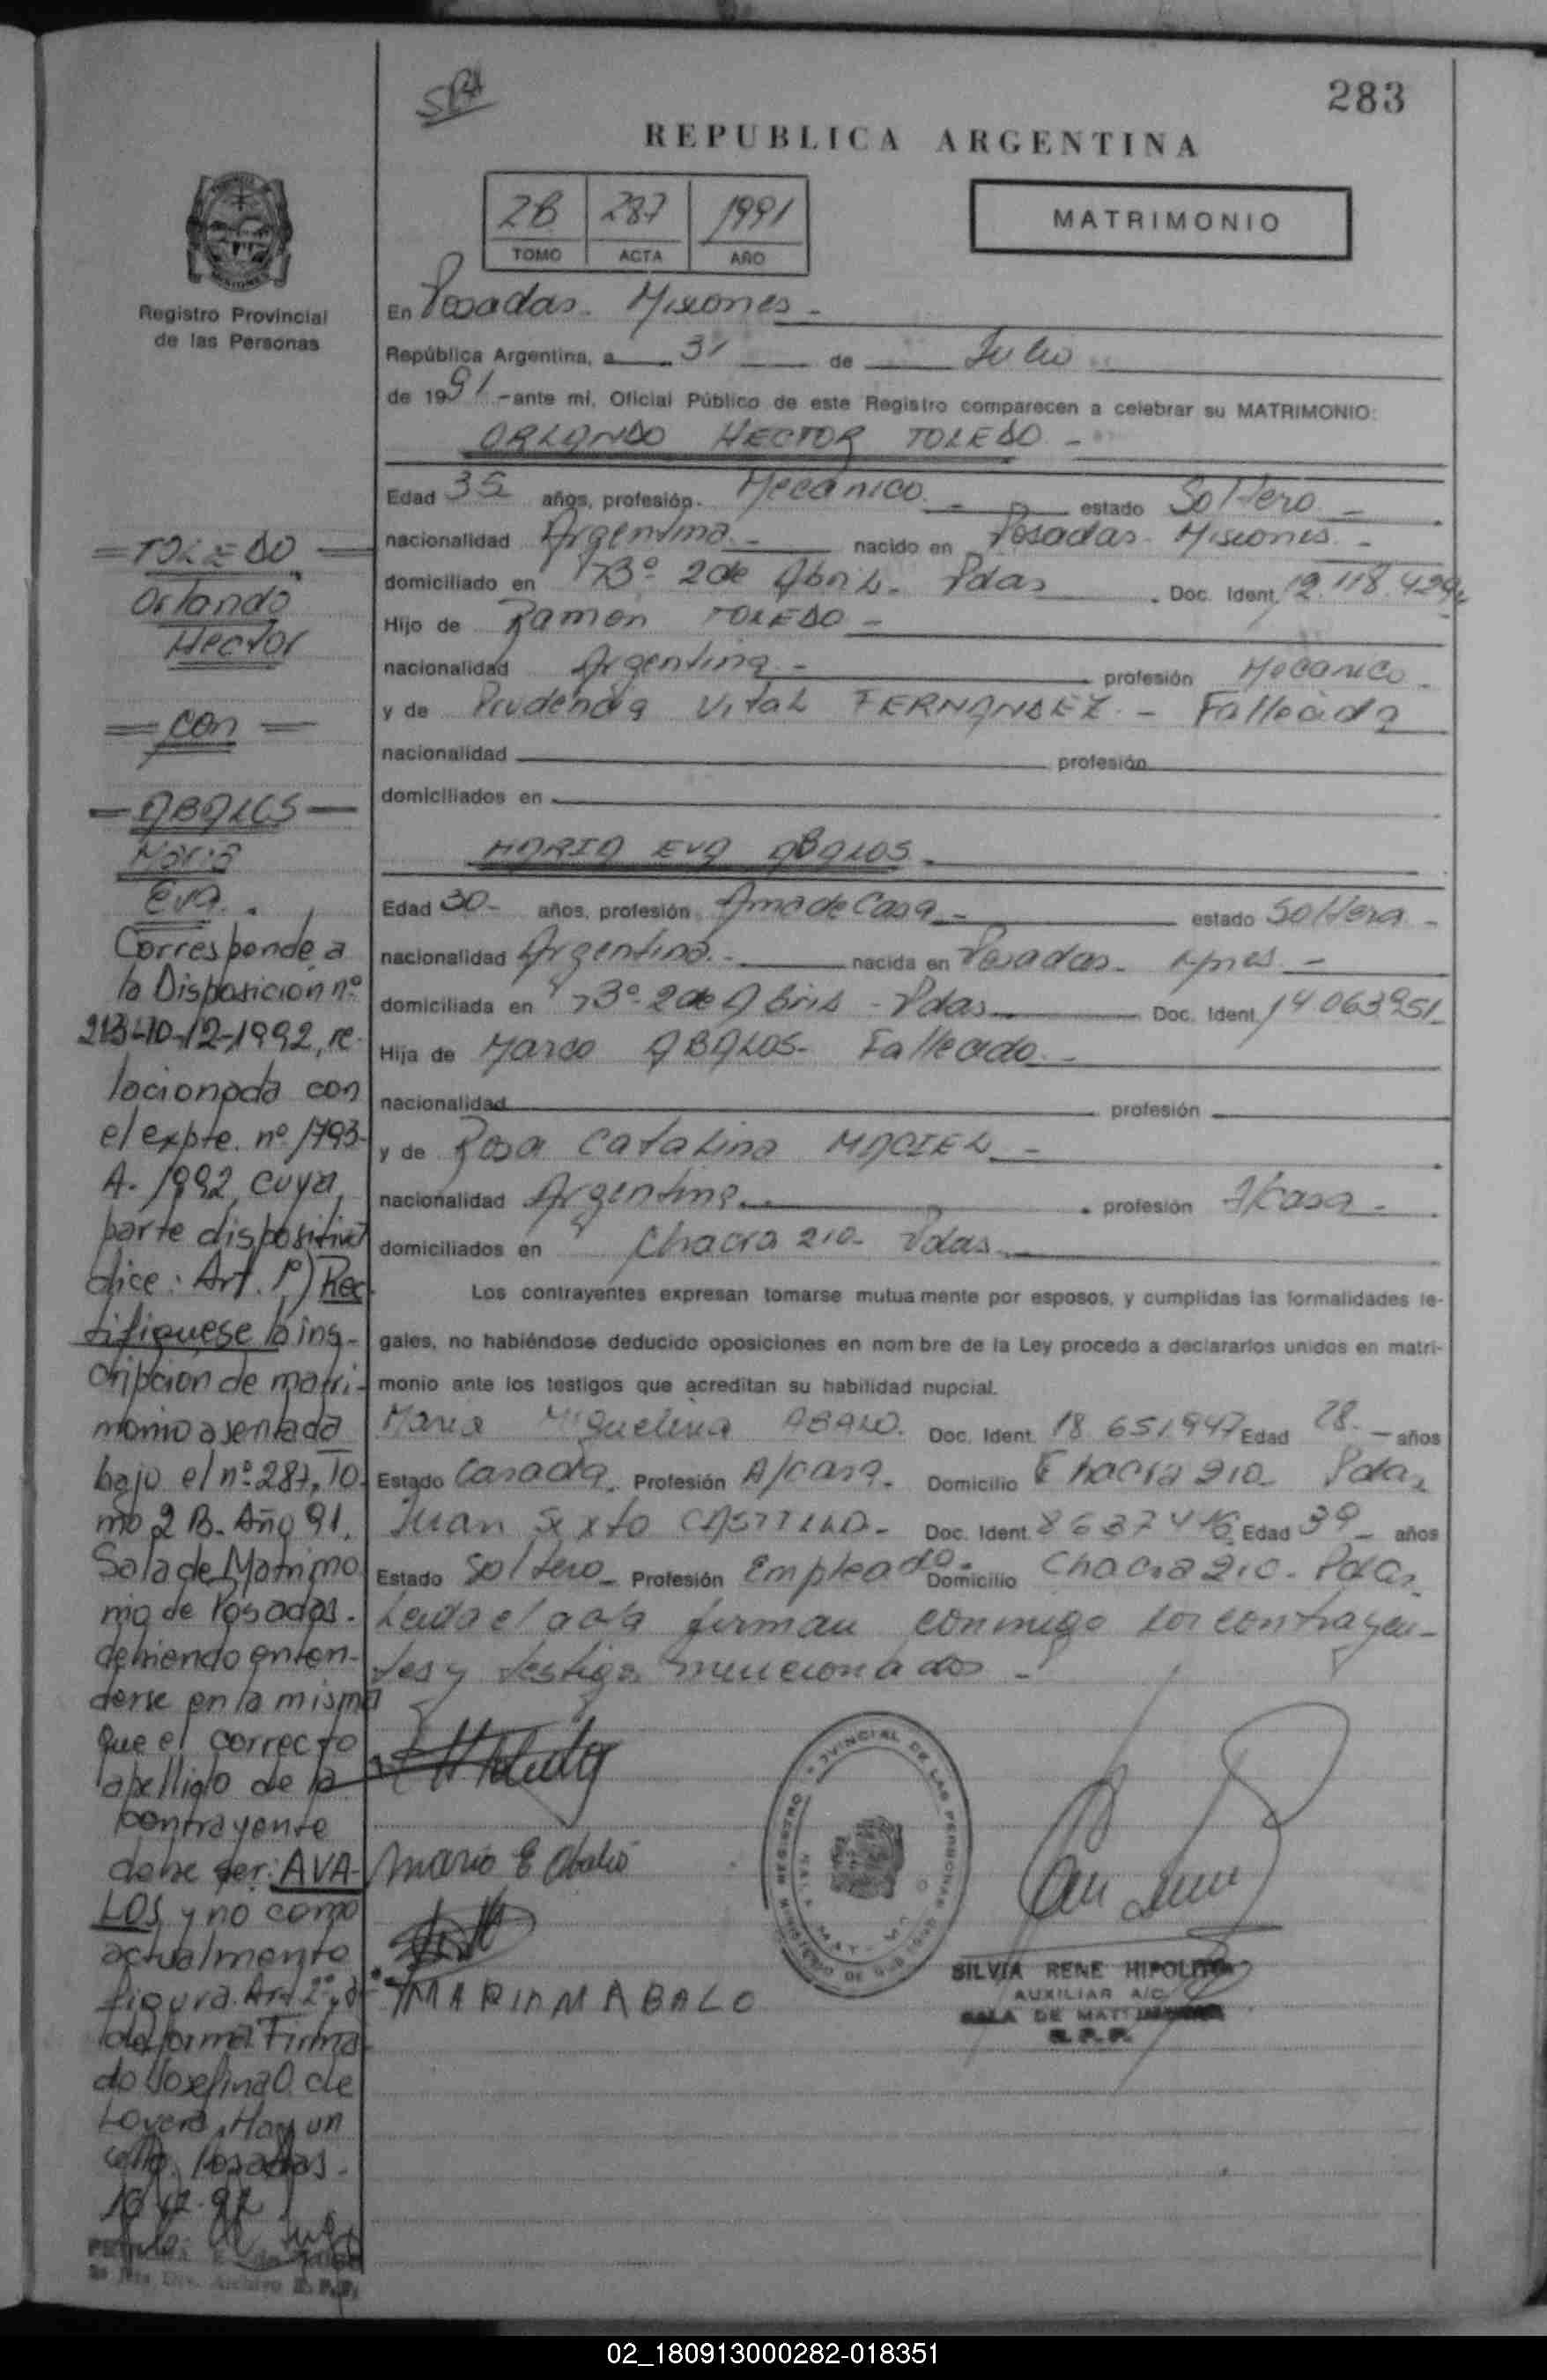 283
REPUBLICA ARGENTINA
2B 287 1991
TOMO ACTA AÑO
MATRIMONIO
Registro Provincial
de las Personas
En Posadas - Misiones -
República Argentina, a 31 de Julio
de 1991 - ante mí, Oficial Público de este Registro comparecen a celebrar su MATRIMONIO:
ORLANDO HECTOR TOLEDO -
Edad 35 años, profesión. Mecanico. - estado Soltero -
nacionalidad Argentina. - nacido en Posadas - Misiones -
domiciliado en B° 2 de Abril - Pdas Doc. Ident. 12.118.429
Hijo de Ramon TOLEDO -
nacionalidad Argentina - profesión Mecanico -
y de Prudencia Vital FERNANDEZ - Fallecida
nacionalidad profesión
domiciliados en
MARIA EVA ABALOS -
Edad 30 - años, profesión Ama de Casa - estado Soltera -
nacionalidad Argentina. - nacida en Posadas - Mnes -
domiciliada en B° 2 de Abril - Pdas Doc. Ident. 14.063951
Hija de Marco ABALOS - Fallecido -
nacionalidad profesión
y de Rosa Catalina MACIEL -
nacionalidad Argentina. profesión A/casa -
domiciliados en Chacra 210 - Pdas.
Los contrayentes expresan tomarse mutua mente por esposos, y cumplidas las formalidades le-
gales, no habiéndose deducido oposiciones en nom bre de la Ley procedo a declararlos unidos en matri-
monio ante los testigos que acreditan su habilidad nupcial.
Maria Miguelina ABALO. Doc. Ident. 18 651947 Edad 28 - años
Estado Casada. Profesión A/casa. Domicilio Chacra 210 - Pdas
Juan Sixto CASTILLO - Doc. Ident. 8637416 Edad 39 - años
Estado Soltero - Profesión Empleado. Domicilio Chacra 210 - Pdas
Leida el acta firman conmigo los contrayen-
tes y testigos mencionados -
= TOLEDO =
Orlando
Hector
= con =
= ABALOS =
Maria
Eva.
Corresponde a
la Disposicion nº
213-10-12-1992, re-
lacionada con
el expte. nº 1793-
A-1992, cuya
parte dispositiva
dice: Art. 1º) Rec-
tifiquese la ins-
cripcion de matri-
monio asentada
bajo el nº 287, To-
mo 2 B. Año 91,
Sala de Matrimo
nio de Posadas -
debiendo enten-
derse en la misma
que el correcto
apellido de la
contrayente
debe ser: AVA-
LOS y no como
actualmente
figura. Art 2º) de
de forma. Firma-
do Josefina O. de
Lovera. Hay un
sello. Posadas -
10-12-92
Maria E Abalo
MARIA M ABALO
SILVIA RENE HIPOLITO
AUXILIAR A/C
SALA DE MAT
R. P. P.
02_180913000282-018351